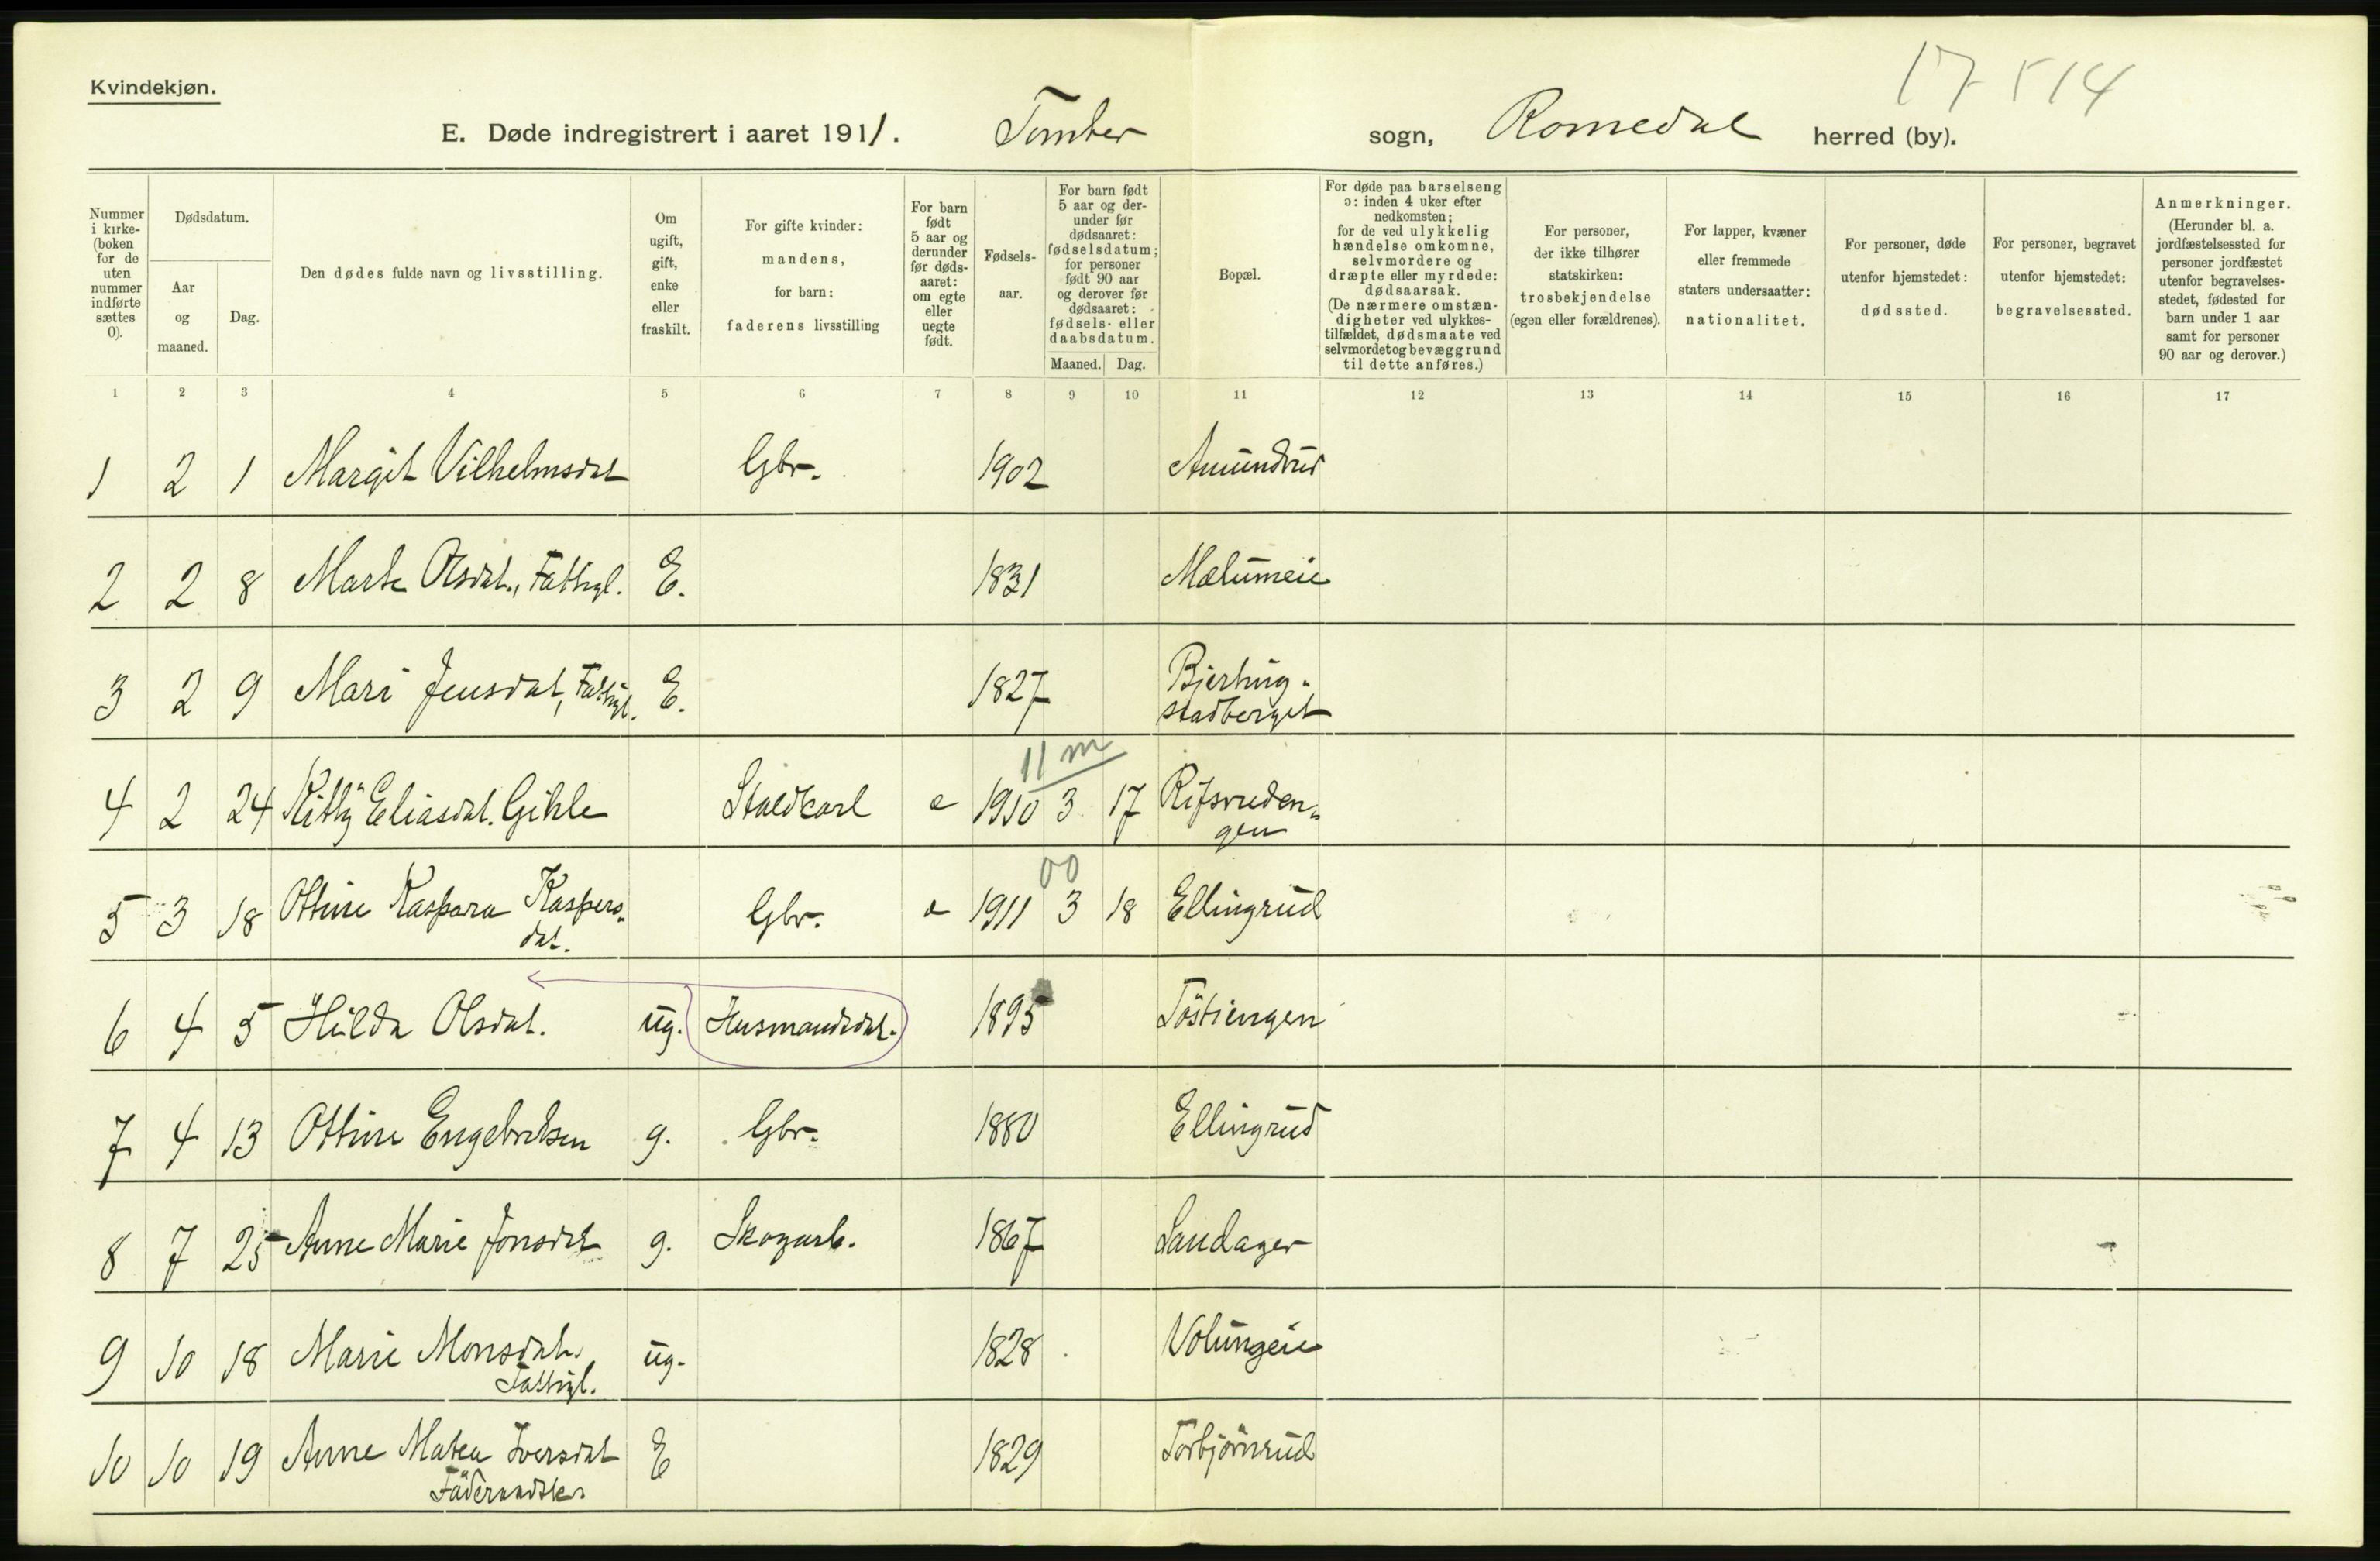 17 514
Kvindekjøn.
E. Døde indregistrert i aaret 1911. Tomter sogn, Romedal herred (by).
Nummer i kirke- (boken for de uten nummer indførte sættes 0).
Dødsdatum.
Aar og maaned.
Dag.
Den dødes fulde navn og livsstilling.
Om ugift, gift, enke eller fraskilt.
For gifte kvinder: mandens, for barn: faderens livsstilling
For barn født 5 aar og derunder før døds- aaret: om egte eller uegte født.
Fødsels- aar.
For barn født 5 aar og der- under før dødsaaret: fødselsdatum; for personer født 90 aar og derover før dødsaaret: fødsels- eller daabsdatum.
Maaned. Dag.
Bopæl.
For døde paa barselseng ɔ: inden 4 uker efter nedkomsten; for de ved ulykkelig hændelse omkomne, selvmordere og dræpte eller myrdede: dødsaarsak. (De nærmere omstæn- digheter ved ulykkes- tilfældet, dødsmaate ved selvmordet og bevæggrund til dette anføres.)
For personer, der ikke tilhører statskirken: trosbekjendelse (egen eller forældrenes).
For lapper, kvæner eller fremmede staters undersaatter: nationalitet.
For personer, døde utenfor hjemstedet: dødssted.
For personer, begravet utenfor hjemstedet: begravelsessted.
Anmerkninger. (Herunder bl. a. jordfæstelsessted for personer jordfæstet utenfor begravelses- stedet, fødested for barn under 1 aar samt for personer 90 aar og derover.)
1 2 3 4 5 6 7 8 9 10 11 12 13 14 15 16 17
1 2 1 Margit Vilhelmsdat Gbr. 1902 Amundrud
2 2 8 Marte Olsdat., Fattigl. E. 1831 Mælumeie
3 2 9 Mari Jensdat, Fattigl. E. 1827 Bjerting-
stadberget
11 m
4 2 24 Kitty Eliasdat. Gihle Staldkarl e 1910 3 17 Rifsveden-
gen
00
5 3 18 Ottine Kaspara Kaspers- Gbr. e 1911 3 18 Ellingrud
dat.
6 4 5 Hilda Olsdat. ug. Husmandsdat. 1895 Töstiengen
7 4 13 Ottine Engebretsen g. Gbr. 1880 Ellingrud
8 7 25 Anne Marie Jonsdat g. Skogarb. 1867 Sandager
9 10 18 Marie Monsdat. ug. 1828 Volungeie
Fattigl.
10 10 19 Anne Matea Iversdat E 1829 Torbjörnrud
Föderaadsk.